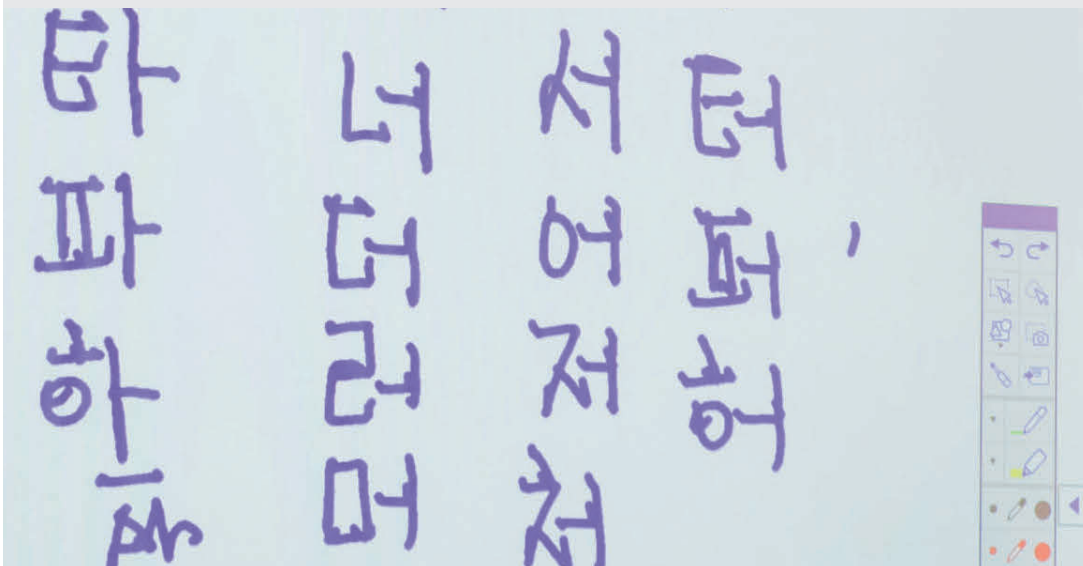 타 파 하
너 더 러 머
서 어 저 처
터 퍼 허